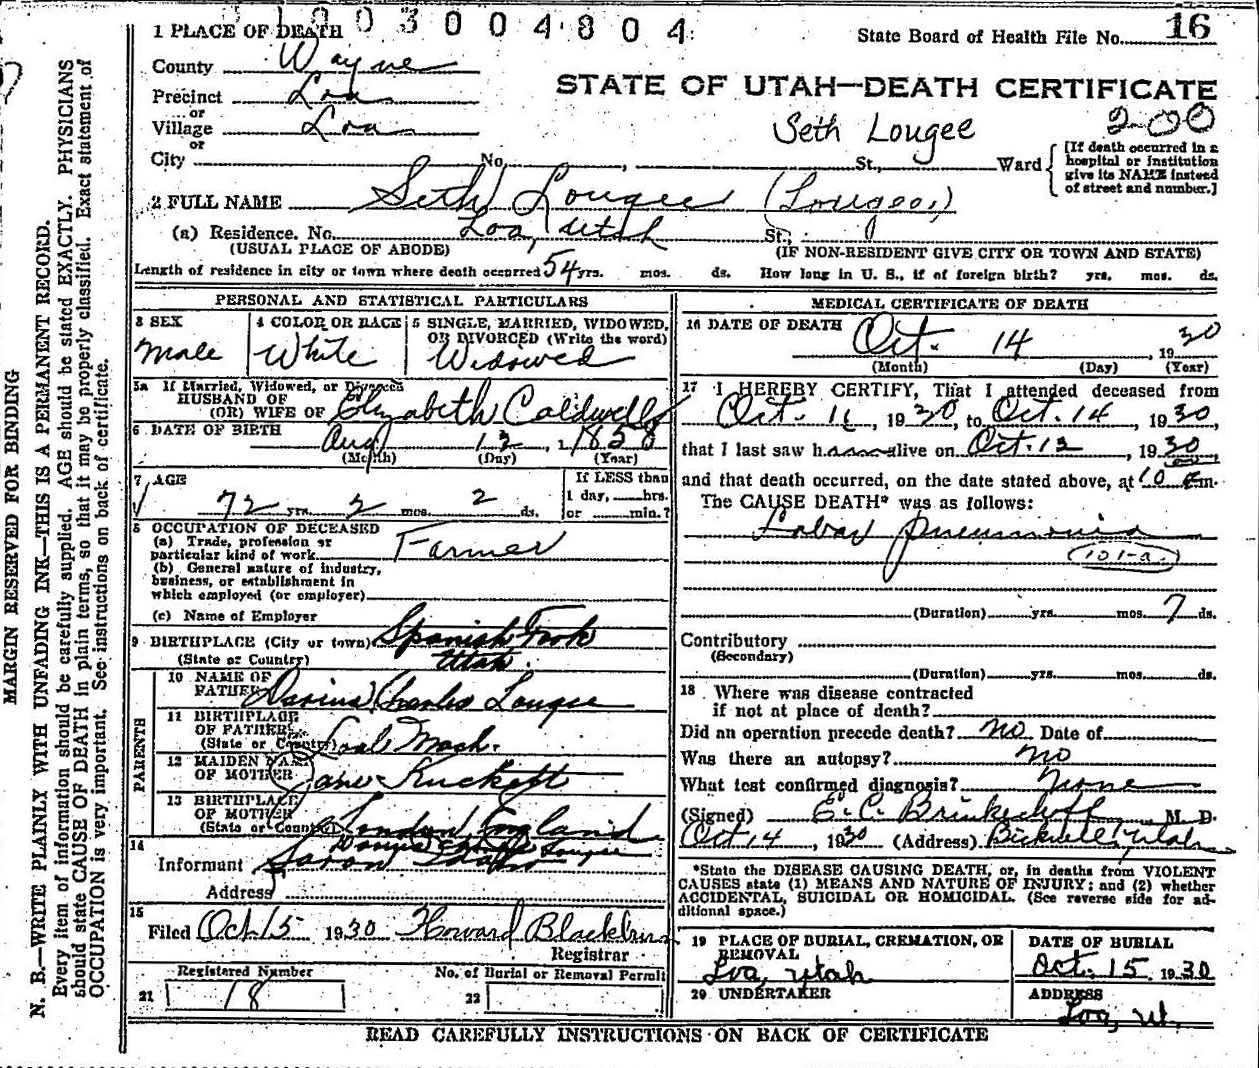 1 PLACE OF DEATH
1 9 0 3 0 0 4 8 0 4
State Board of Health File No. 16
County Wayne
STATE OF UTAH—DEATH CERTIFICATE
Precinct Loa
or
Village Loa
or
Seth Lougee 2-00
City No. , St., Ward
[If death occurred in a
hospital or institution
give its NAME instead
of street and number.]
2 FULL NAME Seth Lougee (Lougee)
(a) Residence. No. Loa, Utah St.,
(USUAL PLACE OF ABODE) (IF NON-RESIDENT GIVE CITY OR TOWN AND STATE)
Length of residence in city or town where death occurred 54 yrs. mos. ds. How long in U. S., if of foreign birth? yrs. mos. ds.
PERSONAL AND STATISTICAL PARTICULARS
3 SEX
Male
4 COLOR OR RACE
White
5 SINGLE, MARRIED, WIDOWED,
OR DIVORCED (Write the word)
Widowed
5a If Married, Widowed, or Divorced
HUSBAND OF
(OR) WIFE OF Elizabeth Caldwell
6 DATE OF BIRTH Aug 12, 1858
(Month) (Day) (Year)
7 AGE
72 yrs. 2 mos. 2 ds.
If LESS than
1 day, hrs.
or min.?
8 OCCUPATION OF DECEASED
(a) Trade, profession or
particular kind of work Farmer
(b) General nature of industry,
business, or establishment in
which employed (or employer)
(c) Name of Employer
9 BIRTHPLACE (City or town) Spanish Fork
(State or Country) Utah.
PARENTS
10 NAME OF
FATHER Darius Charles Lougee
11 BIRTHPLACE
OF FATHER
(State or Country) Mash.
12 MAIDEN NAME
OF MOTHER Jane Ruckett
13 BIRTHPLACE
OF MOTHER
(State or Country) London, England
14
Informant Lougee
Address
15
Filed Oct 15 1930 Howard Blackburn
Registrar
Registered Number
21 18
No. of Burial or Removal Permit
22
MEDICAL CERTIFICATE OF DEATH
16 DATE OF DEATH
Oct. 14 1930
(Month) (Day) (Year)
17 I HEREBY CERTIFY, That I attended deceased from
Oct. 11, 1930, to Oct. 14, 1930,
that I last saw h alive on Oct. 12, 1930
and that death occurred, on the date stated above, at 10 m.
The CAUSE DEATH* was as follows:
Lobar pneumonia
101-a
(Duration) yrs. mos. 7 ds.
Contributory
(Secondary)
(Duration) yrs. mos. ds.
18 Where was disease contracted
if not at place of death?
Did an operation precede death? No Date of
Was there an autopsy? no
What test confirmed diagnosis? None
(Signed) E. C. Brinkerhoff M. D.
Oct 14, 1930 (Address) Bicknell, Utah
*State the DISEASE CAUSING DEATH, or, in deaths from VIOLENT
CAUSES state (1) MEANS AND NATURE OF INJURY; and (2) whether
ACCIDENTAL, SUICIDAL OR HOMICIDAL. (See reverse side for ad-
ditional space.)
19 PLACE OF BURIAL, CREMATION, OR
REMOVAL
Loa, Utah
DATE OF BURIAL
Oct. 15 1930
20 UNDERTAKER
ADDRESS
Loa, Ut.
READ CAREFULLY INSTRUCTIONS ON BACK OF CERTIFICATE
MARGIN RESERVED FOR BINDING
N. B.—WRITE PLAINLY WITH UNFADING INK—THIS IS A PERMANENT RECORD.
Every item of information should be carefully supplied. AGE should be stated EXACTLY. PHYSICIANS
should state CAUSE OF DEATH in plain terms, so that it may be properly classified. Exact statement of
OCCUPATION is very important. See instructions on back of certificate.